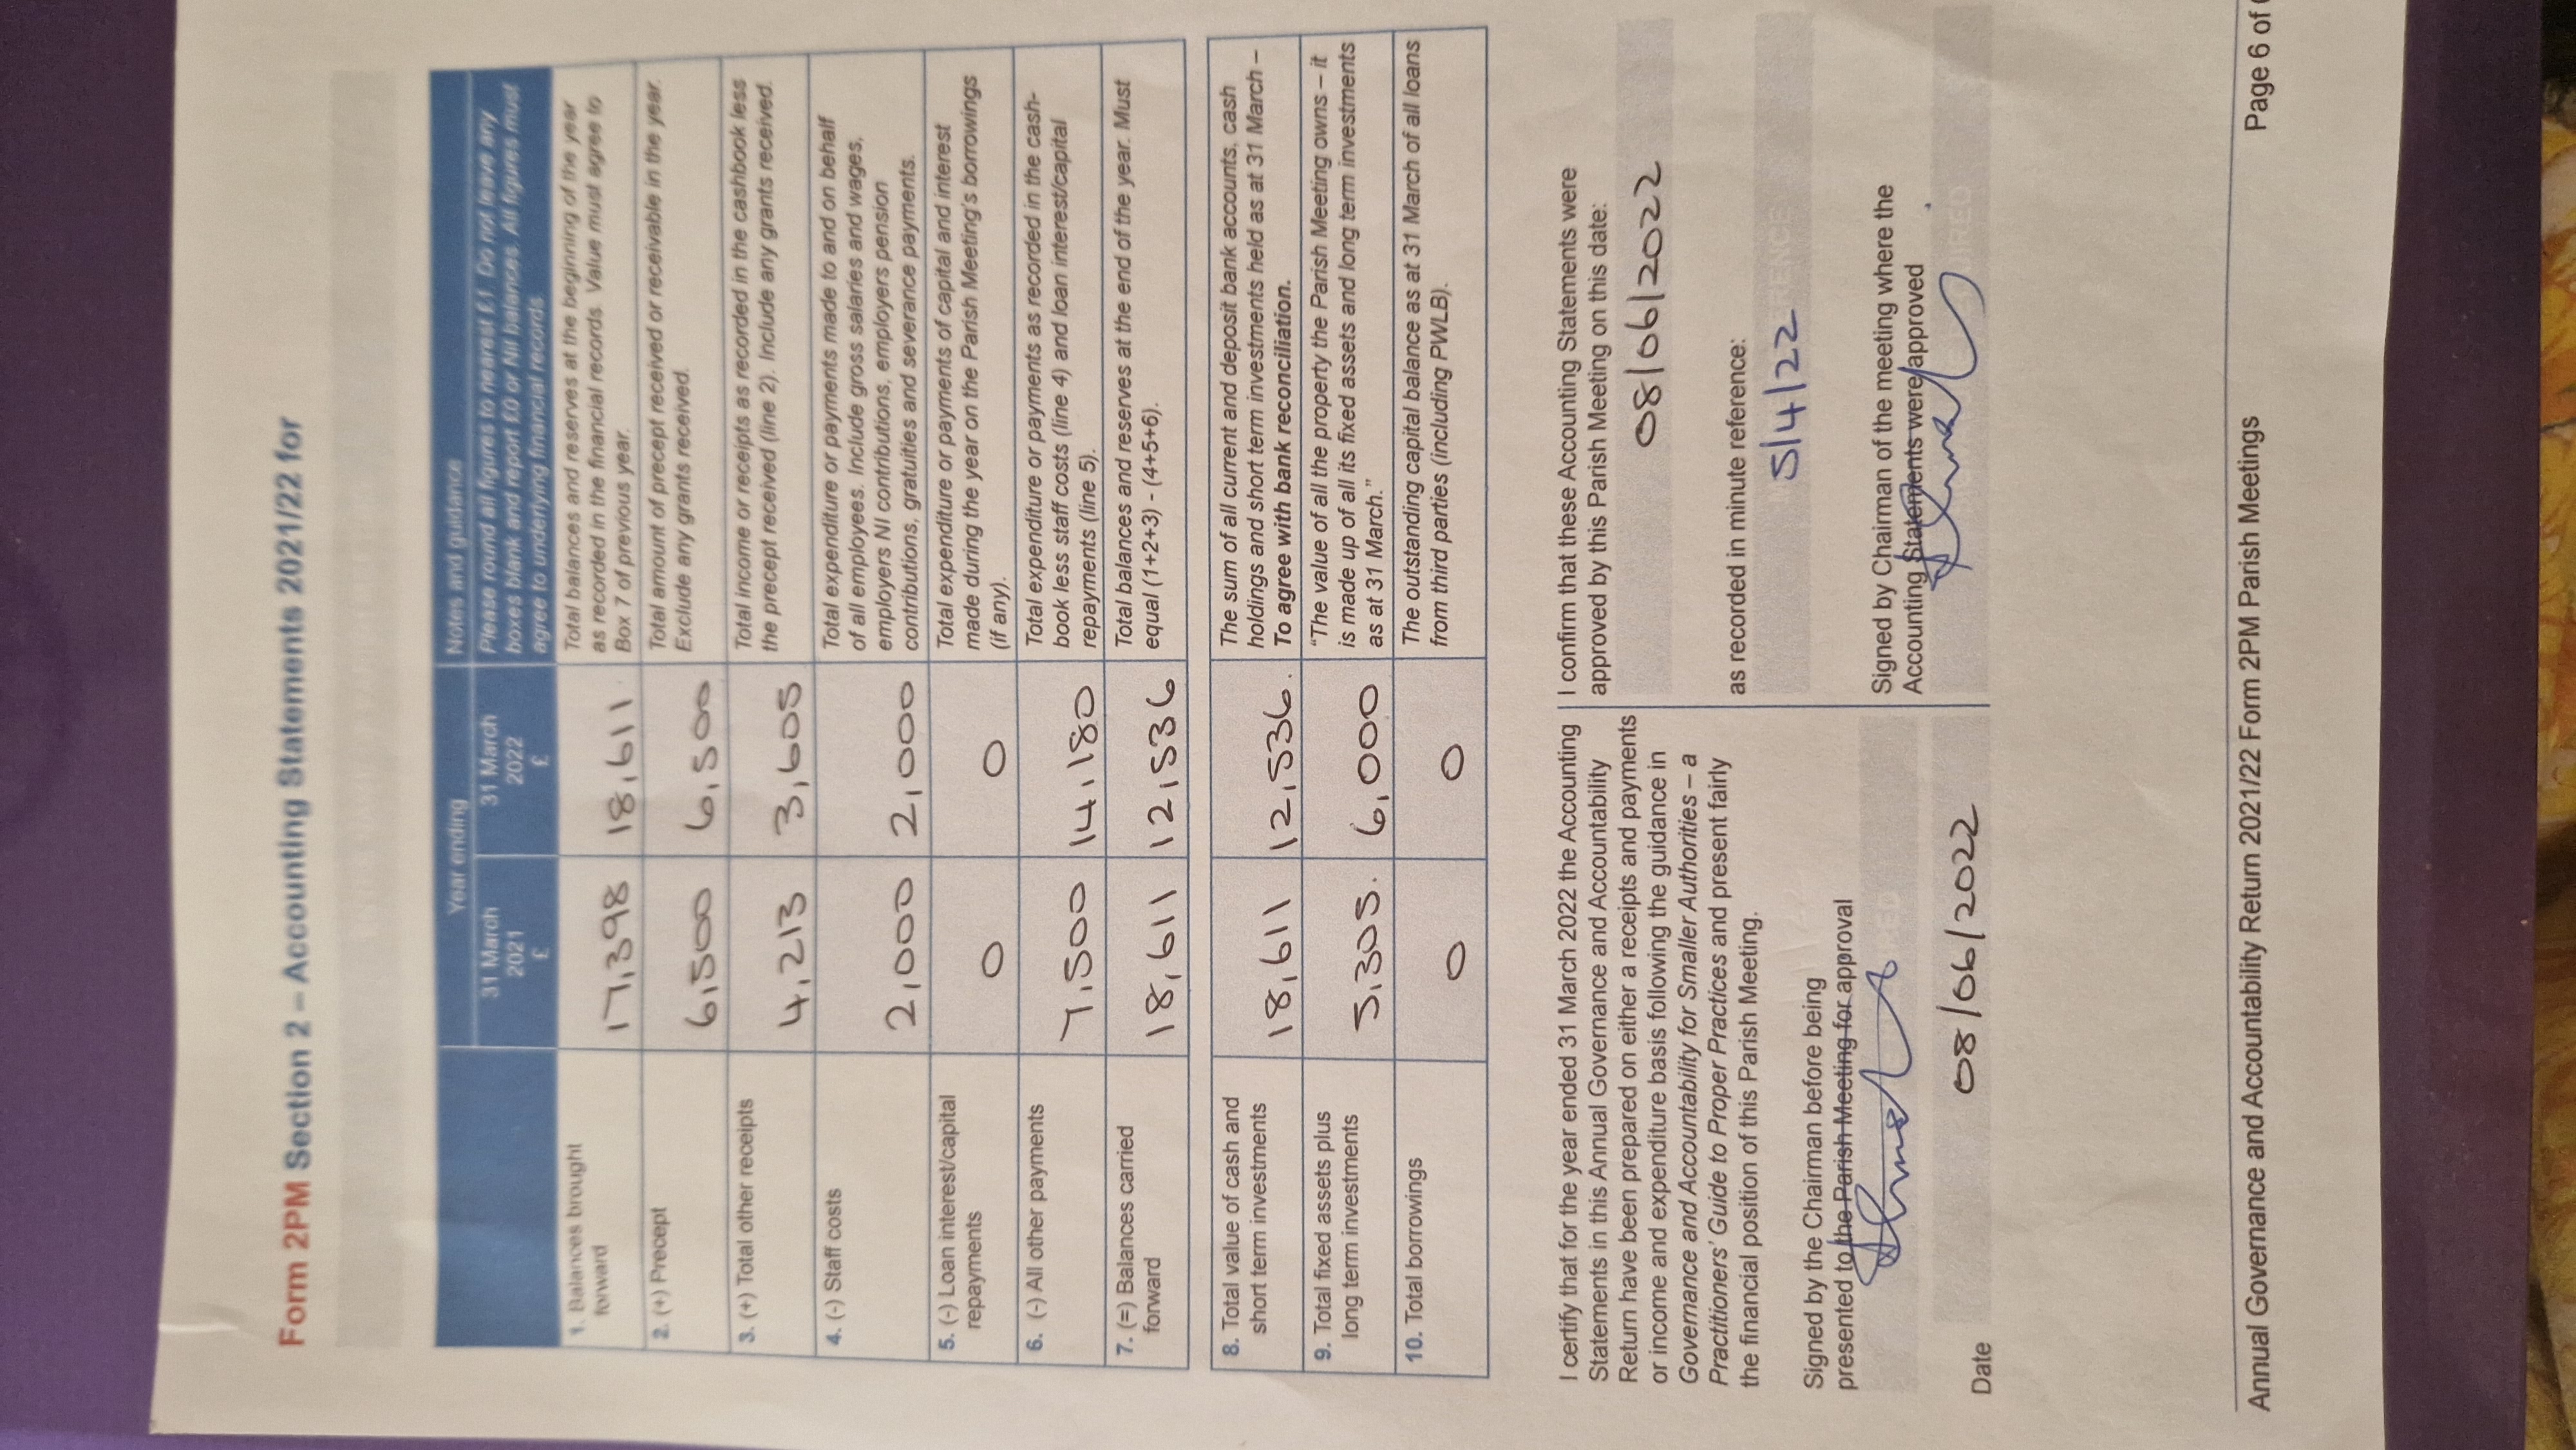 Form 2PM Section 2 – Accounting Statements 2021/22 for
Year ending
Notes and guidance
31 March
2021
£
31 March
2022
£
Please round all figures to nearest £1. Do not leave any
boxes blank and report £0 or Nil balances. All figures must
agree to underlying financial records
1. Balances brought
forward
17,398
18,611
Total balances and reserves at the beginning of the year
as recorded in the financial records. Value must agree to
Box 7 of previous year.
2. (+) Precept
6,500
6,500
Total amount of precept received or receivable in the year.
Exclude any grants received.
3. (+) Total other receipts
4,213
3,605
Total income or receipts as recorded in the cashbook less
the precept received (line 2). Include any grants received.
4. (-) Staff costs
2,000
2,000
Total expenditure or payments made to and on behalf
of all employees. Include gross salaries and wages,
employers NI contributions, employers pension
contributions, gratuities and severance payments.
5. (-) Loan interest/capital
repayments
0
0
Total expenditure or payments of capital and interest
made during the year on the Parish Meeting's borrowings
(if any).
6. (-) All other payments
7,500
14,180
Total expenditure or payments as recorded in the cash-
book less staff costs (line 4) and loan interest/capital
repayments (line 5).
7. (=) Balances carried
forward
18,611
12,536
Total balances and reserves at the end of the year. Must
equal (1+2+3) - (4+5+6).
8. Total value of cash and
short term investments
18,611
12,536.
The sum of all current and deposit bank accounts, cash
holdings and short term investments held as at 31 March –
To agree with bank reconciliation.
9. Total fixed assets plus
long term investments
5,305.
6,000
"The value of all the property the Parish Meeting owns – it
is made up of all its fixed assets and long term investments
as at 31 March."
10. Total borrowings
0
0
The outstanding capital balance as at 31 March of all loans
from third parties (including PWLB).
I certify that for the year ended 31 March 2022 the Accounting
Statements in this Annual Governance and Accountability
Return have been prepared on either a receipts and payments
or income and expenditure basis following the guidance in
Governance and Accountability for Smaller Authorities – a
Practitioners' Guide to Proper Practices and present fairly
the financial position of this Parish Meeting.
Signed by the Chairman before being
presented to the Parish Meeting for approval
Date
08/06/2022
I confirm that these Accounting Statements were
approved by this Parish Meeting on this date:
08/06/2022
as recorded in minute reference:
5/4/22
Signed by Chairman of the meeting where the
Accounting Statements were approved
Annual Governance and Accountability Return 2021/22 Form 2PM Parish Meetings
Page 6 of